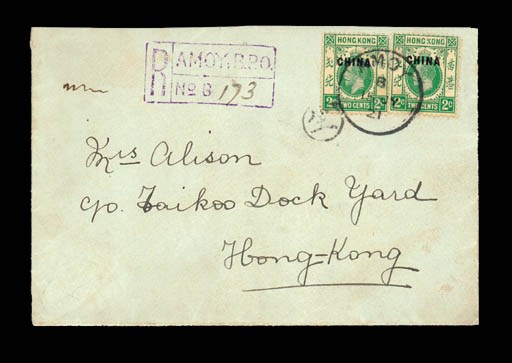 R AMOY. B.P.O.
No B 173
HONG KONG
CHINA
2c TWO CENTS 2c
HONG KONG
CHINA
2c TWO CENTS 2c
AMO
8
21
Mrs Alison
c/o. Taikoo Dock Yard
Hong-Kong